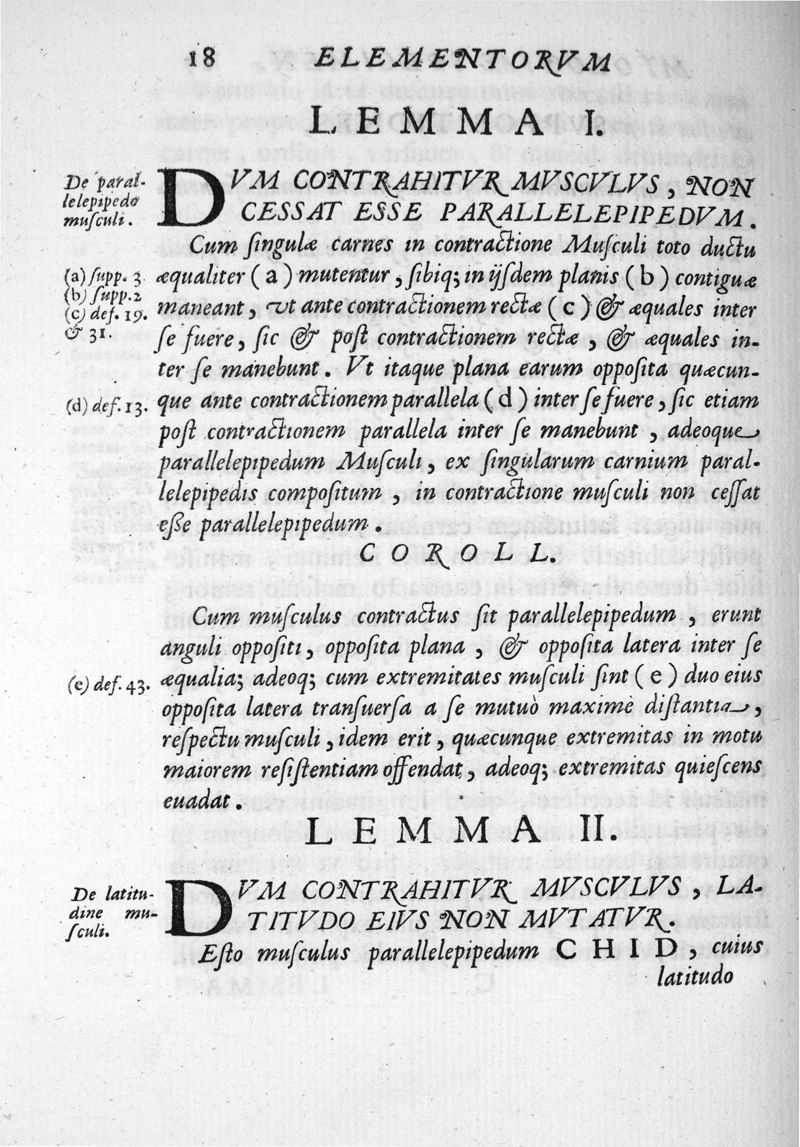 18 ELEMENTORVM
LEMMA I.
De paral-
lelepipedo
muſculi.
DVM CONTRAHITVR MVSCVLVS, NON
CESSAT ESSE PARALLELEPIPEDVM.
Cum ſingulæ carnes in contractione Muſculi toto ductu
(a) ſupp. 3
æqualiter (a) mutentur, ſibiq; in ijſdem planis (b) contiguæ
(b) ſupp. 2
(c) def. 19.
maneant, vt ante contractionem rectæ (c) & æquales inter
& 31.
ſe fuere, ſic & poſt contractionem rectæ, & æquales in-
ter ſe manebunt. Vt itaque plana earum oppoſita quæcun-
(d) def. 13.
que ante contractionem parallela (d) inter ſe fuere, ſic etiam
poſt contractionem parallela inter ſe manebunt, adeoque
parallelepipedum Muſculi, ex ſingularum carnium paral-
lelepipedis compoſitum, in contractione muſculi non ceſſat
eſſe parallelepipedum.
COROLL.
Cum muſculus contractus ſit parallelepipedum, erunt
anguli oppoſiti, oppoſita plana, & oppoſita latera inter ſe
(e) def. 43.
æqualia; adeoq; cum extremitates muſculi ſint (e) duo eius
oppoſita latera tranſuerſa a ſe mutuò maximè diſtantia,
reſpectu muſculi, idem erit, quæcunque extremitas in motu
maiorem reſiſtentiam offendat, adeoq; extremitas quieſcens
euadat.
LEMMA II.
De latitu-
dine mu-
ſculi.
DVM CONTRAHITVR MVSCVLVS, LA-
TITVDO EIVS NON MVTATVR.
Eſto muſculus parallelepipedum CHID, cuius
latitudo